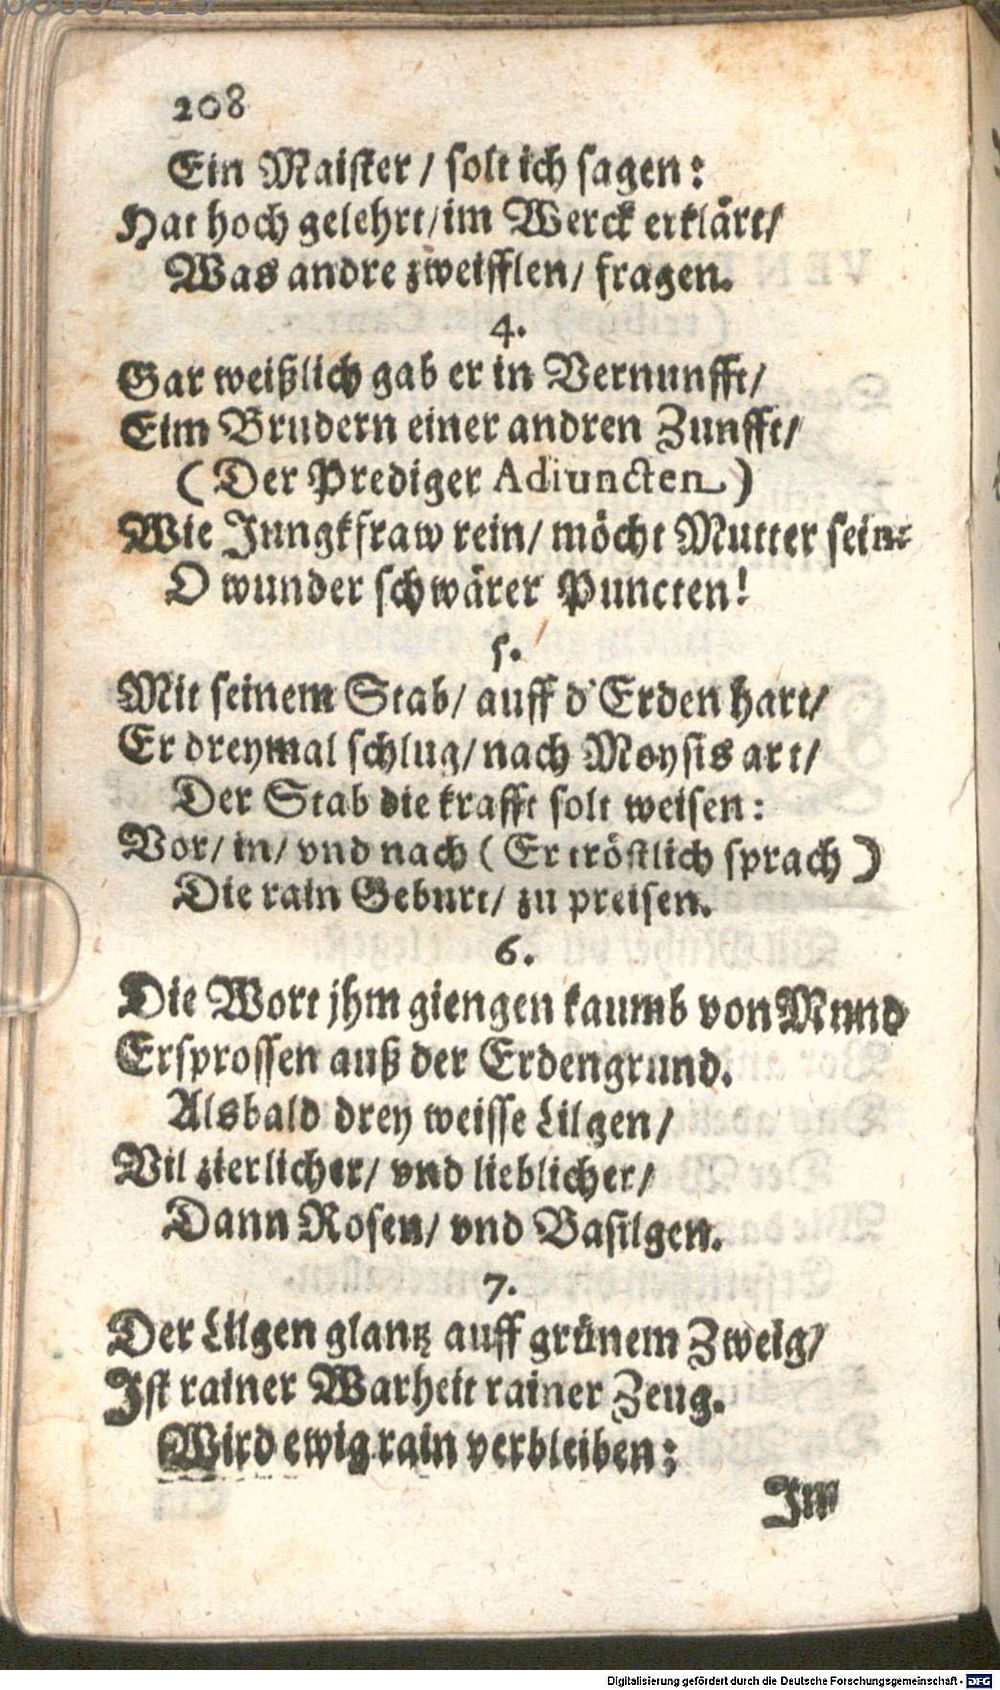 208
Ein Maister / solt ich sagen:
Hat hoch gelehrt/im Werck erklärt/
Was andre zweifflen/ fragen.
4.
Gar weißlich gab er in Vernunfft/
Eim Brudern einer andren Zunfft/
(Der Prediger Adiuncten)
Wie Jungkfraw rein/ möcht Mutter sein:
O wunder schwärer Puncten!
5.
Mit seinem Stab/ auff d'Erden hart/
Er dreymal schlug/nach Moysis art/
Der Stab die krafft solt weisen:
Vor/ in/ vnd nach (Er tröstlich sprach)
Die rain Geburt/ zu preisen.
6.
Die Wort jhm giengen kaumb von Mnnd
Ersprossen auß der Erdengrund.
Alsbald drey weisse Lilgen/
Vil zierlicher/ vnd lieblicher/
Dann Rosen/ vnd Basilgen.
7.
Der Lilgen glantz auff grünem Zweig/
Ist rainer Warheit rainer Zeug.
Wird ewig rain verbleiben;
Im
Digitalisierung gefördert durch die Deutsche Forschungsgemeinschaft - DFG